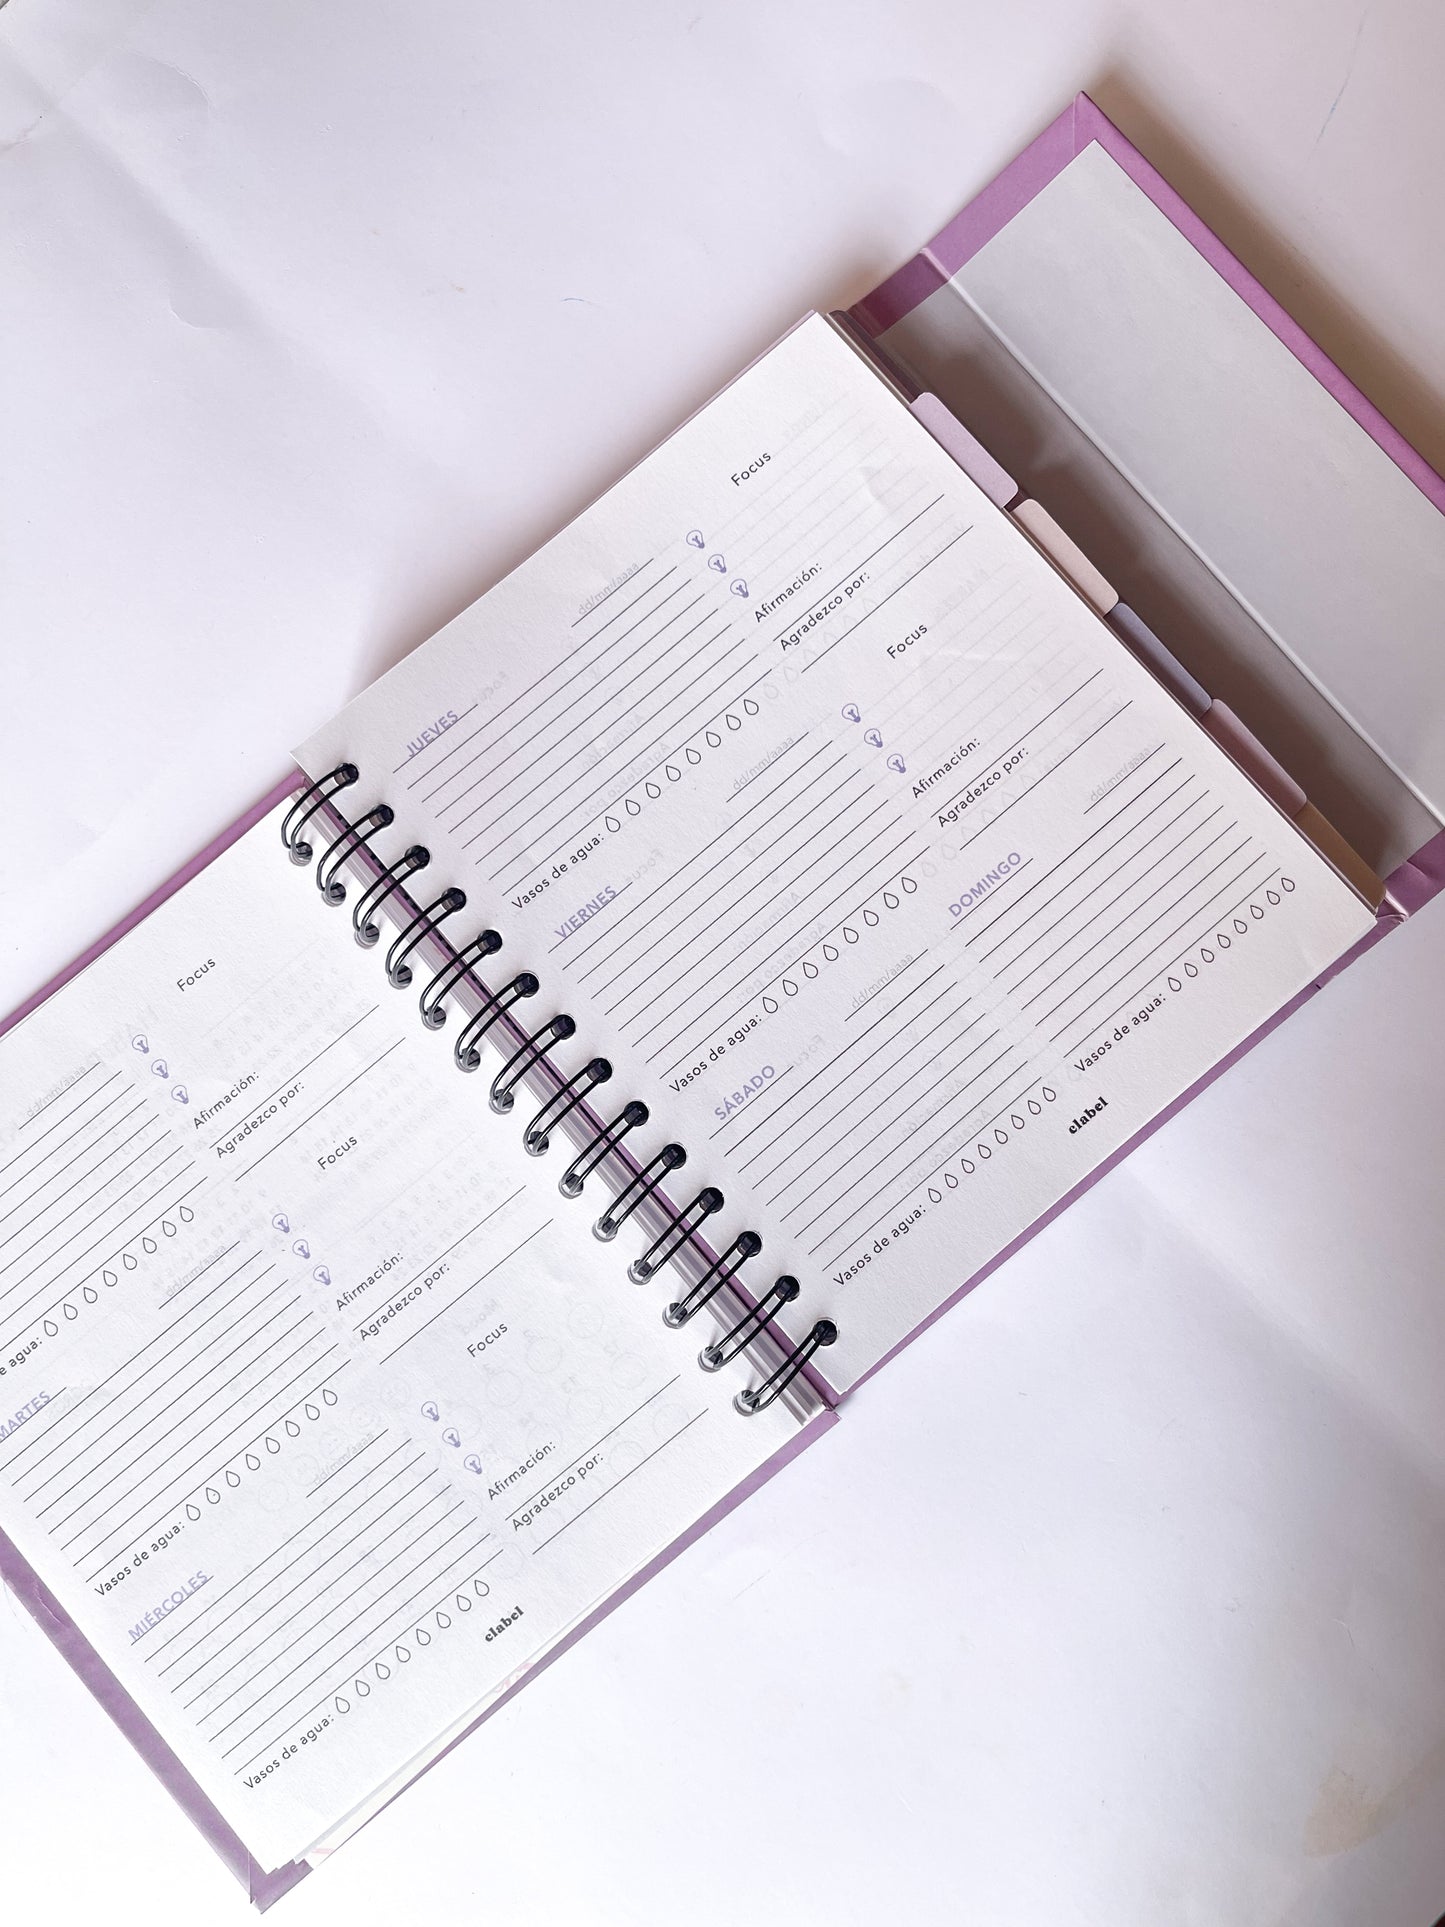 Focus
dd/mm/aaaa
Afirmación:
Agradezco por:
e agua:
MARTES
dd/mm/aaaa
Focus
Afirmación:
Agradezco por:
Vasos de agua:
MIÉRCOLES
dd/mm/aaaa
Focus
Afirmación:
Agradezco por:
Vasos de agua:
clabel
JUEVES
dd/mm/aaaa
Focus
Afirmación:
Agradezco por:
Vasos de agua:
VIERNES
dd/mm/aaaa
Focus
Afirmación:
Agradezco por:
Vasos de agua:
SÁBADO
dd/mm/aaaa
Vasos de agua:
DOMINGO
dd/mm/aaaa
Vasos de agua:
clabel